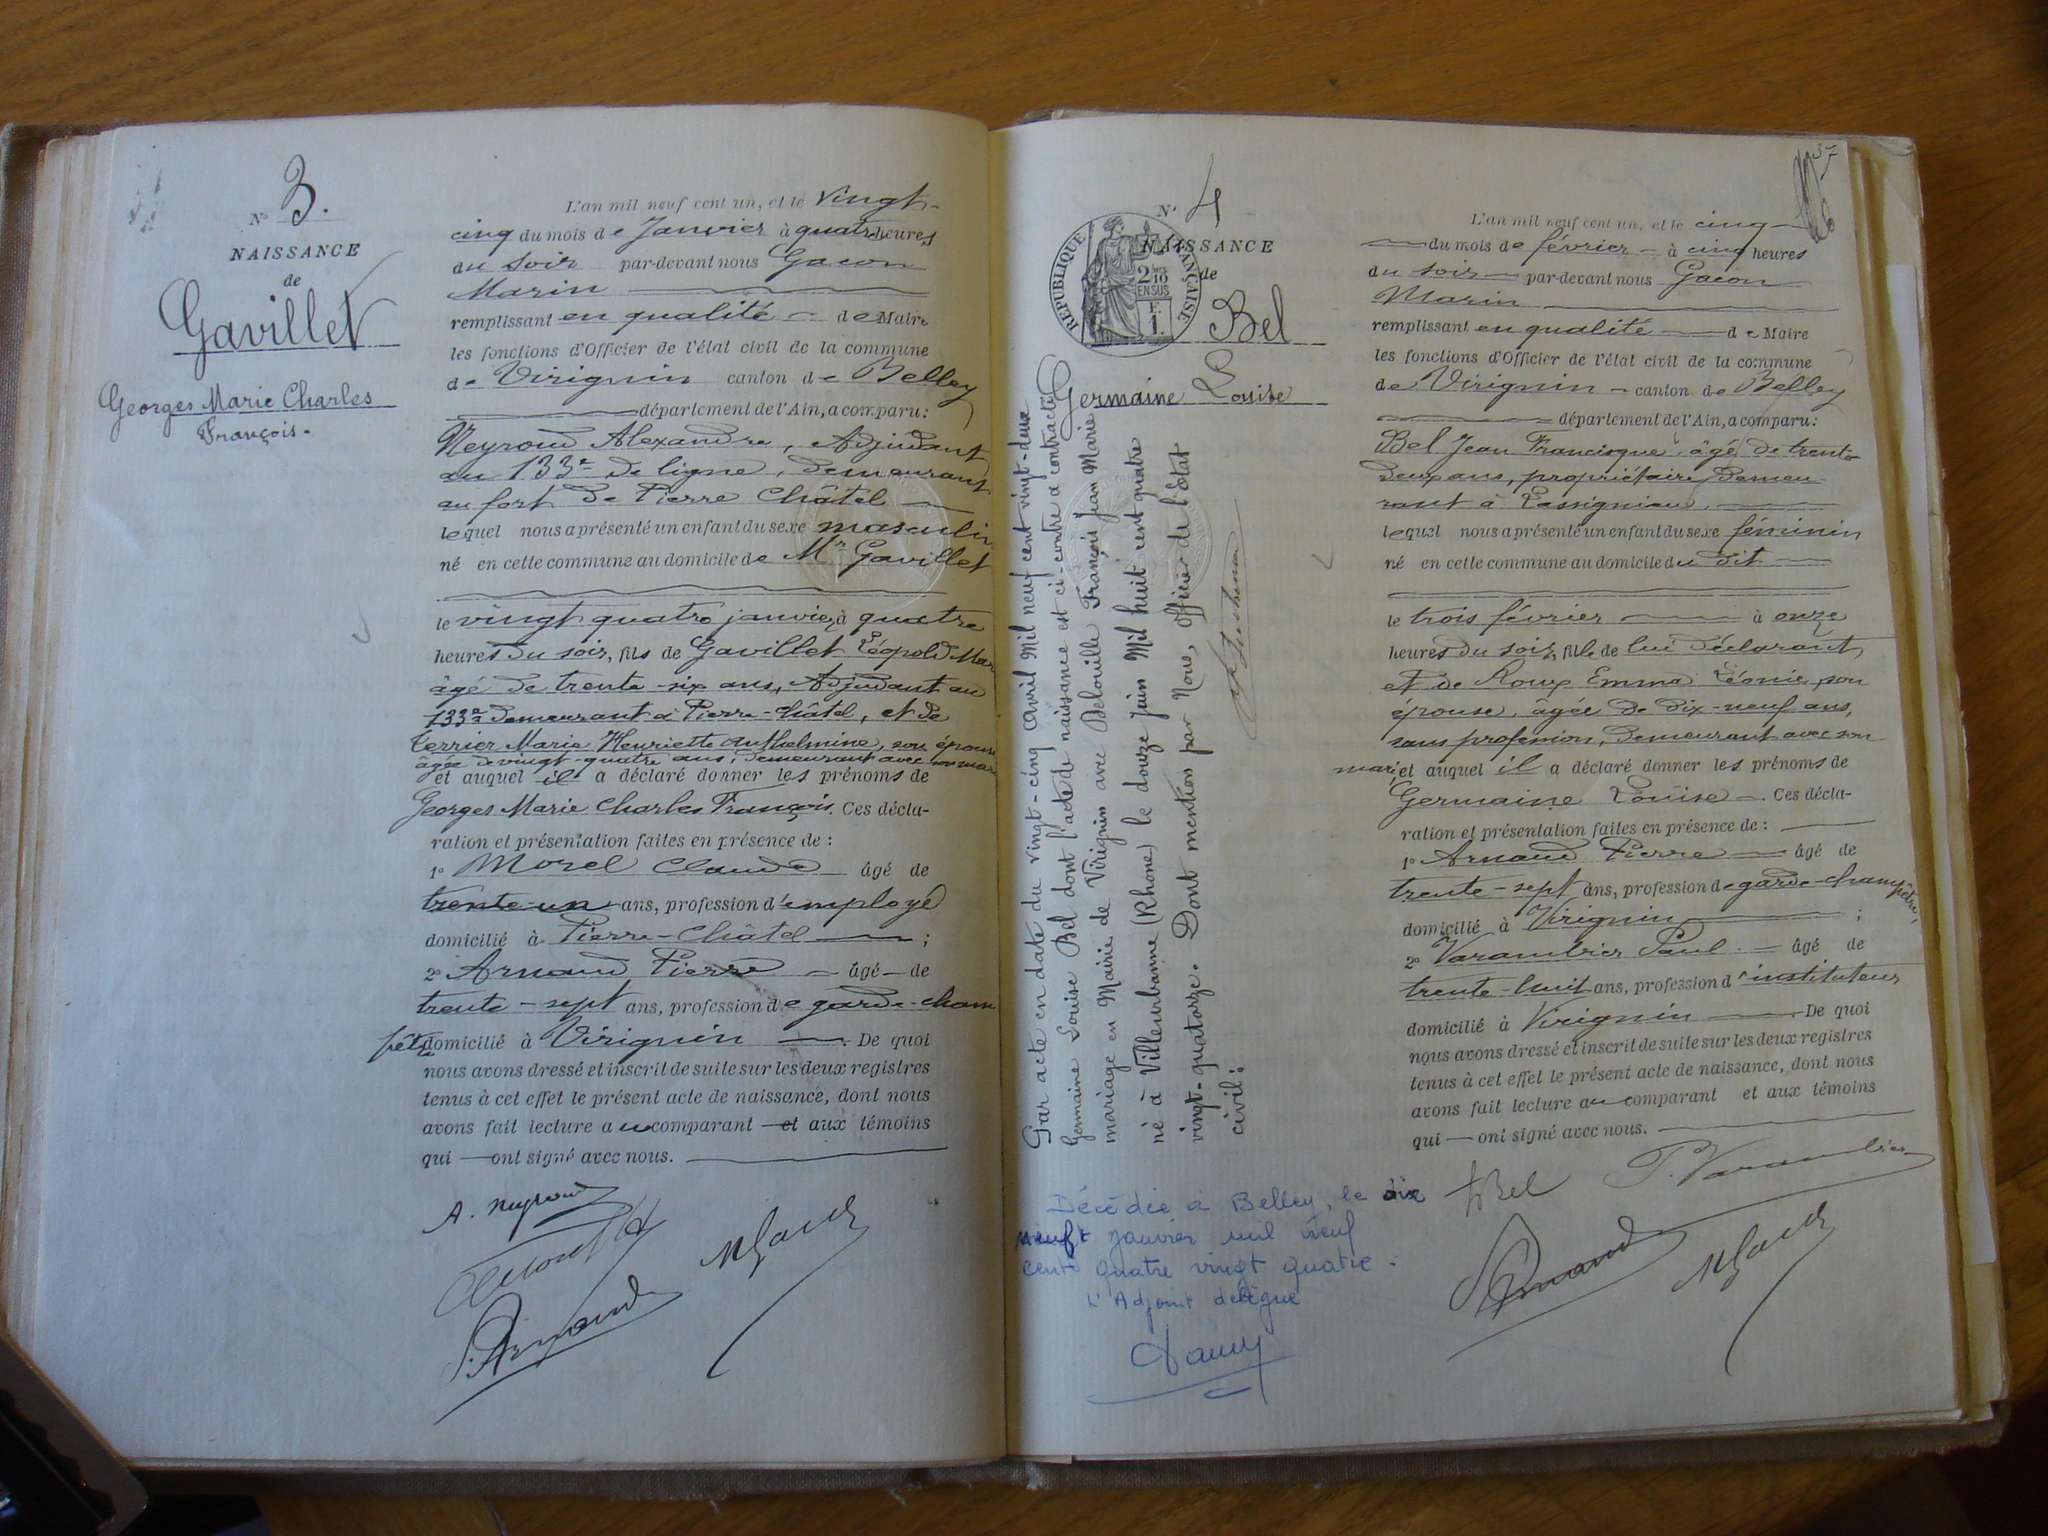 N° 3.
NAISSANCE
de
Gavillet
Georges Marie Charles
François.
L'an mil neuf cent un, et le vingt-
cinq du mois de Janvier à quatre heures
du soir par-devant nous Gacon
Marin
remplissant en qualité de Maire
les fonctions d'Officier de l'état civil de la commune
de Virignin canton de Belley
département de l'Ain, a comparu:
Neyroud Alexandre, Adjudant
au 133e de ligne, demeurant
au fort de Pierre Châtel
lequel nous a présenté un enfant du sexe masculin
né en cette commune au domicile de Mr Gavillet
le vingt quatre janvier à quatre
heures du soir, fils de Gavillet Léopold Mar
âgé de trente-six ans, Adjudant au
133e demeurant à Pierre-Châtel, et de
Terrier Marie Henriette Anthelmine, son épouse
âgée de vingt-quatre ans, demeurant avec son mari
et auquel il a déclaré donner les prénoms de
Georges Marie Charles François. Ces décla-
ration et présentation faites en présence de :
1° Morel Claude âgé de
trente-un ans, profession d'employé
domicilié à Pierre-Châtel ;
2° Arnaud Pierre âgé de
trente-sept ans, profession de garde-cham
pêtre domicilié à Virignin. De quoi
nous avons dressé et inscrit de suite sur les deux registres
tenus à cet effet le présent acte de naissance, dont nous
avons fait lecture au comparant et aux témoins
qui ont signé avec nous.
A. Neyroud
P. Arnaud
M Gacon
37
N° 4
NAISSANCE
de
Bel
Germaine Louise
RÉPUBLIQUE FRANÇAISE
2/10 EN SUS
1 F.
Par acte en date du vingt-cinq Avril Mil neuf cent vingt-deux
Germaine Louise Bel dont l'acte de naissance est ci-contre a contracté
mariage en Mairie de Virignin avec Belouille François Jean Marie
né à Villeurbanne (Rhone) le douze juin Mil huit cent quatre
vingt-quatorze. Dont mention par Nous, Officier de l'Etat
civil:
Décédée à Belley, le dix
neuf janvier mil neuf
cent quatre vingt quatre.
L'Adjoint délégué
L'an mil neuf cent un, et le cinq
du mois de février à cinq heures
du soir par-devant nous Gacon
Marin
remplissant en qualité de Maire
les fonctions d'Officier de l'état civil de la commune
de Virignin canton de Belley
département de l'Ain, a comparu:
Bel Jean Francisque, âgé de trente-
deux ans, propriétaire, demeu-
rant à Lassignieu
lequel nous a présenté un enfant du sexe féminin
né en cette commune au domicile du dit
le trois février à onze
heures du soir, fille de lui déclarant,
et de Roux Emma Léonie, son
épouse, âgée de dix-neuf ans,
sans profession, demeurant avec son
mari, et auquel il a déclaré donner les prénoms de
Germaine Louise. Ces décla-
ration et présentation faites en présence de :
1° Arnaud Pierre âgé de
trente-sept ans, profession de garde-champêtre,
domicilié à Virignin ;
2° Varambier Paul âgé de
trente-huit ans, profession d'instituteur
domicilié à Virignin. De quoi
nous avons dressé et inscrit de suite sur les deux registres
tenus à cet effet le présent acte de naissance, dont nous
avons fait lecture au comparant et aux témoins
qui ont signé avec nous.
Bel
P. Varambier
Arnaud
M Gacon